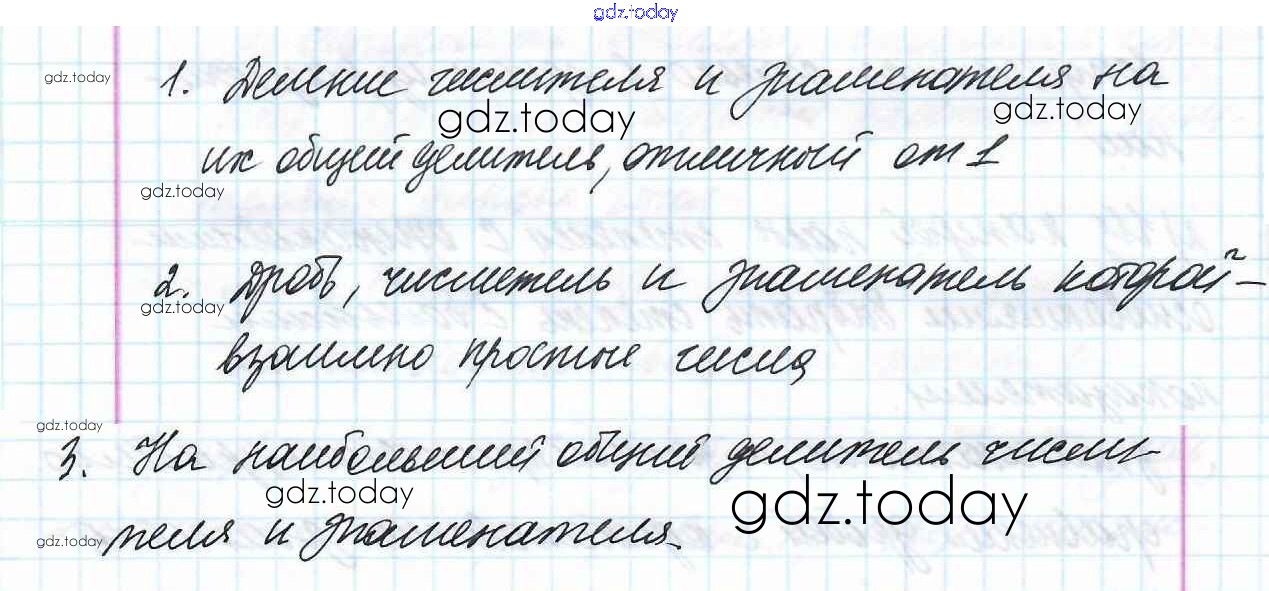 gdz.today
gdz.today
1. Деление числителя и знаменателя на
gdz.today
gdz.today
их общий делитель, отличный от 1
gdz.today
2. Дробь, числитель и знаменатель которой –
gdz.today
взаимно простые числа
gdz.today
3. На наибольший общий делитель числи-
gdz.today
gdz.today
теля и знаменателя
gdz.today